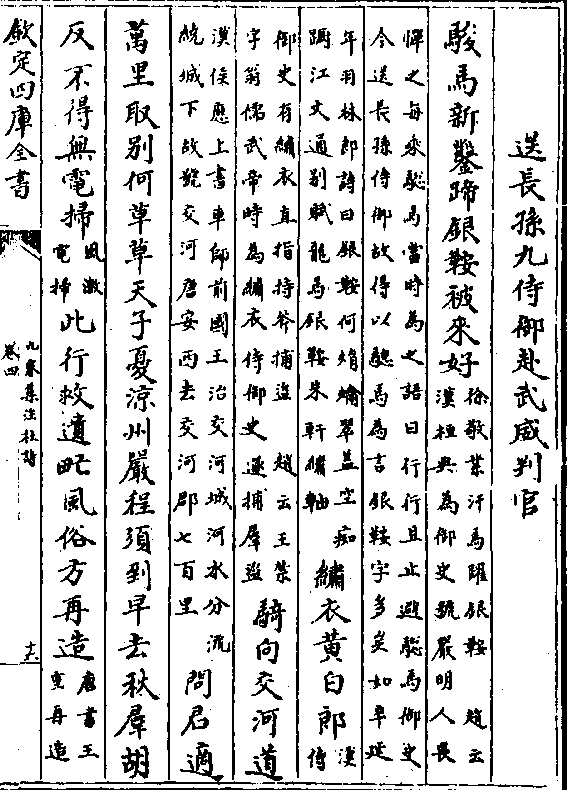 送長孫九侍御赴武威判官
驄馬新鑿蹄銀鞍被來好
徐敬業汗馬躍銀鞍　趙云
漢桓典為御史號嚴明人畏
憚之每乘驄馬當時為之語曰行行且止避驄馬御史
今送長孫侍御故得以驄馬為言銀鞍字多矣如辛延
年羽林郎詩曰銀鞍何煜爚翠蓋空踟
蹰江文通別賦龍馬銀鞍朱軒繡軸
繡衣黄白郎
漢
侍
御史有繡衣直指持斧捕盜　趙云王禁
字翁儒武帝時為繡衣侍御史逐捕羣盜
騎向交河道
漢侯應上書車師前國王治交河城河水分流
繞城下故號交河唐安西去交河郡七百里
問君適
萬里取別何草草天子憂涼州嚴程須到早去秋羣胡
反不得無電掃
風激
電掃
此行救遺甿風俗方再造
唐書王
室再造
欽定四庫全書
九家集注杜詩
卷四
十六